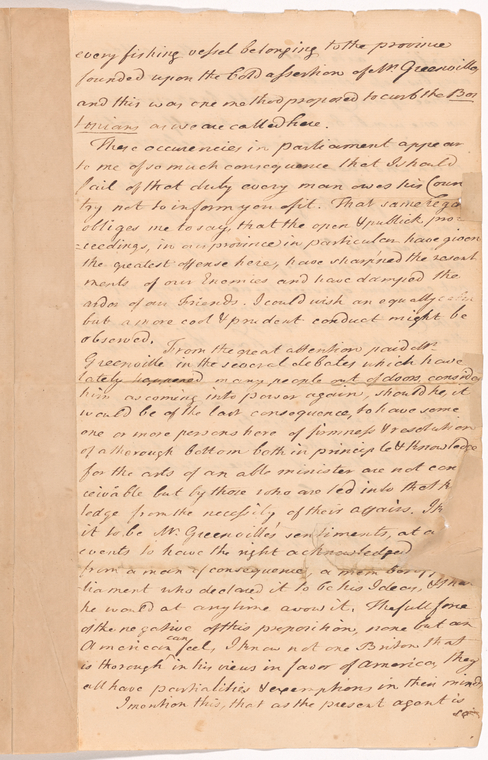 every fishing vessel belonging to the province
founded upon the bold assertion of Mr Greenville,
and this was one method proposed to curb the Bos
tonians as we are called here.
These occurencies in parliament appear
to me of so much consequence that I should
fail of that duty every man owes his Coun
try not to inform you of it. That same regar
obliges me to say, that the open & publick pro=
=ceedings, in our province in particular have given
the greatest offense here, have sharpned the resent
ments of our Enemies and have damped the
ardor of our Friends. I could wish an equally
but a more cool & prudent conduct might be
observed.
From the great attention paid Mr
Greenville in the several debates which have
lately happened many people out of doors, consider
him as coming into power again, should he, it
would be of the last consequence, to have some
one or more persons here of firmness & resolution
of a thorough bottom both in principle & knowledge
for the arts of an able minister are not con
ceivable but by those who are led into that k
ledge from the necessity of their affairs. I k
it to be Mr Greenville's sentiments, at a
events to have the right acknowledged
from a man of consequence, a
liament who declared it to be his Ideas, & tha
he would at anytime avow it. The full force
of the negative of this proposition, none but an
American can feel, I know not one Briton that
is thorough in his views in favor of America, they
all have partialities & exemptions in their minds
I mention this, that as the present agent is
so